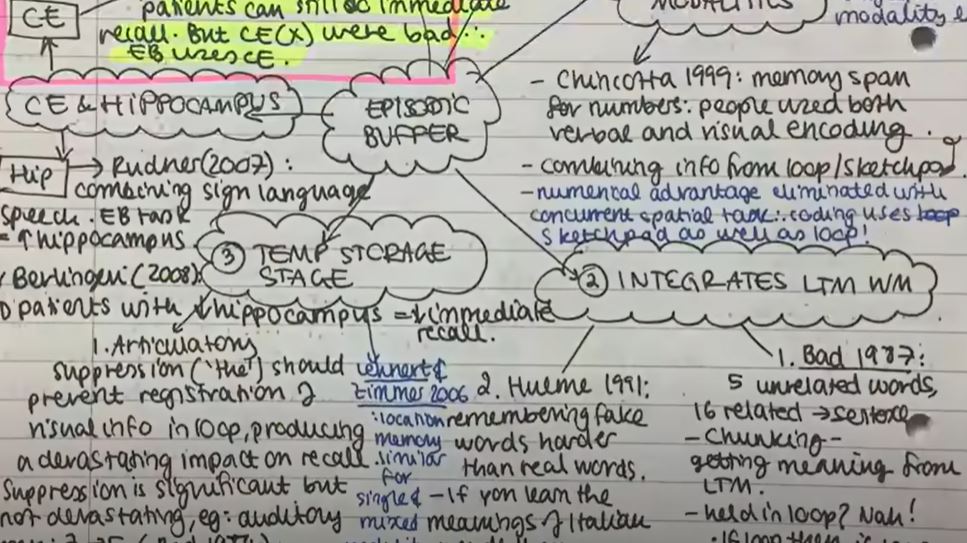 CE
patients can still do immediate
recall. But CE(X) were bad ∴
EB uses CE.
MODALITIES
modality
CE & HIPPOCAMPUS
EPISODIC
BUFFER
- Chincotta 1999: memory span
for numbers: people used both
verbal and visual encoding.
- combining info from loop/sketchpad
- numerical advantage eliminated with
concurrent spatial task ∴ coding uses loop
sketchpad as well as loop!
Hip → Rudner (2007):
combining sign language
speech. EB task
= ↑ hippocampus
Berlingeri (2008)
patients with ↓ hippocampus = ↓ immediate
recall.
③ TEMP STORAGE
STAGE
② INTEGRATES LTM WM
1. Articulatory
suppression ('the') should
prevent registration of
visual info in loop, producing
a devastating impact on recall.
Suppression is significant but
not devastating, eg: auditory
Zimmer 2006
: location
memory
similar
for
single &
mixed
2. Hueme 1991:
remembering fake
words harder
than real words.
- If you learn the
meanings of Italian
1. Bad 1987:
5 unrelated words,
16 related → sentence
- Chunking -
getting meaning from
LTM.
- held in loop? Nah!